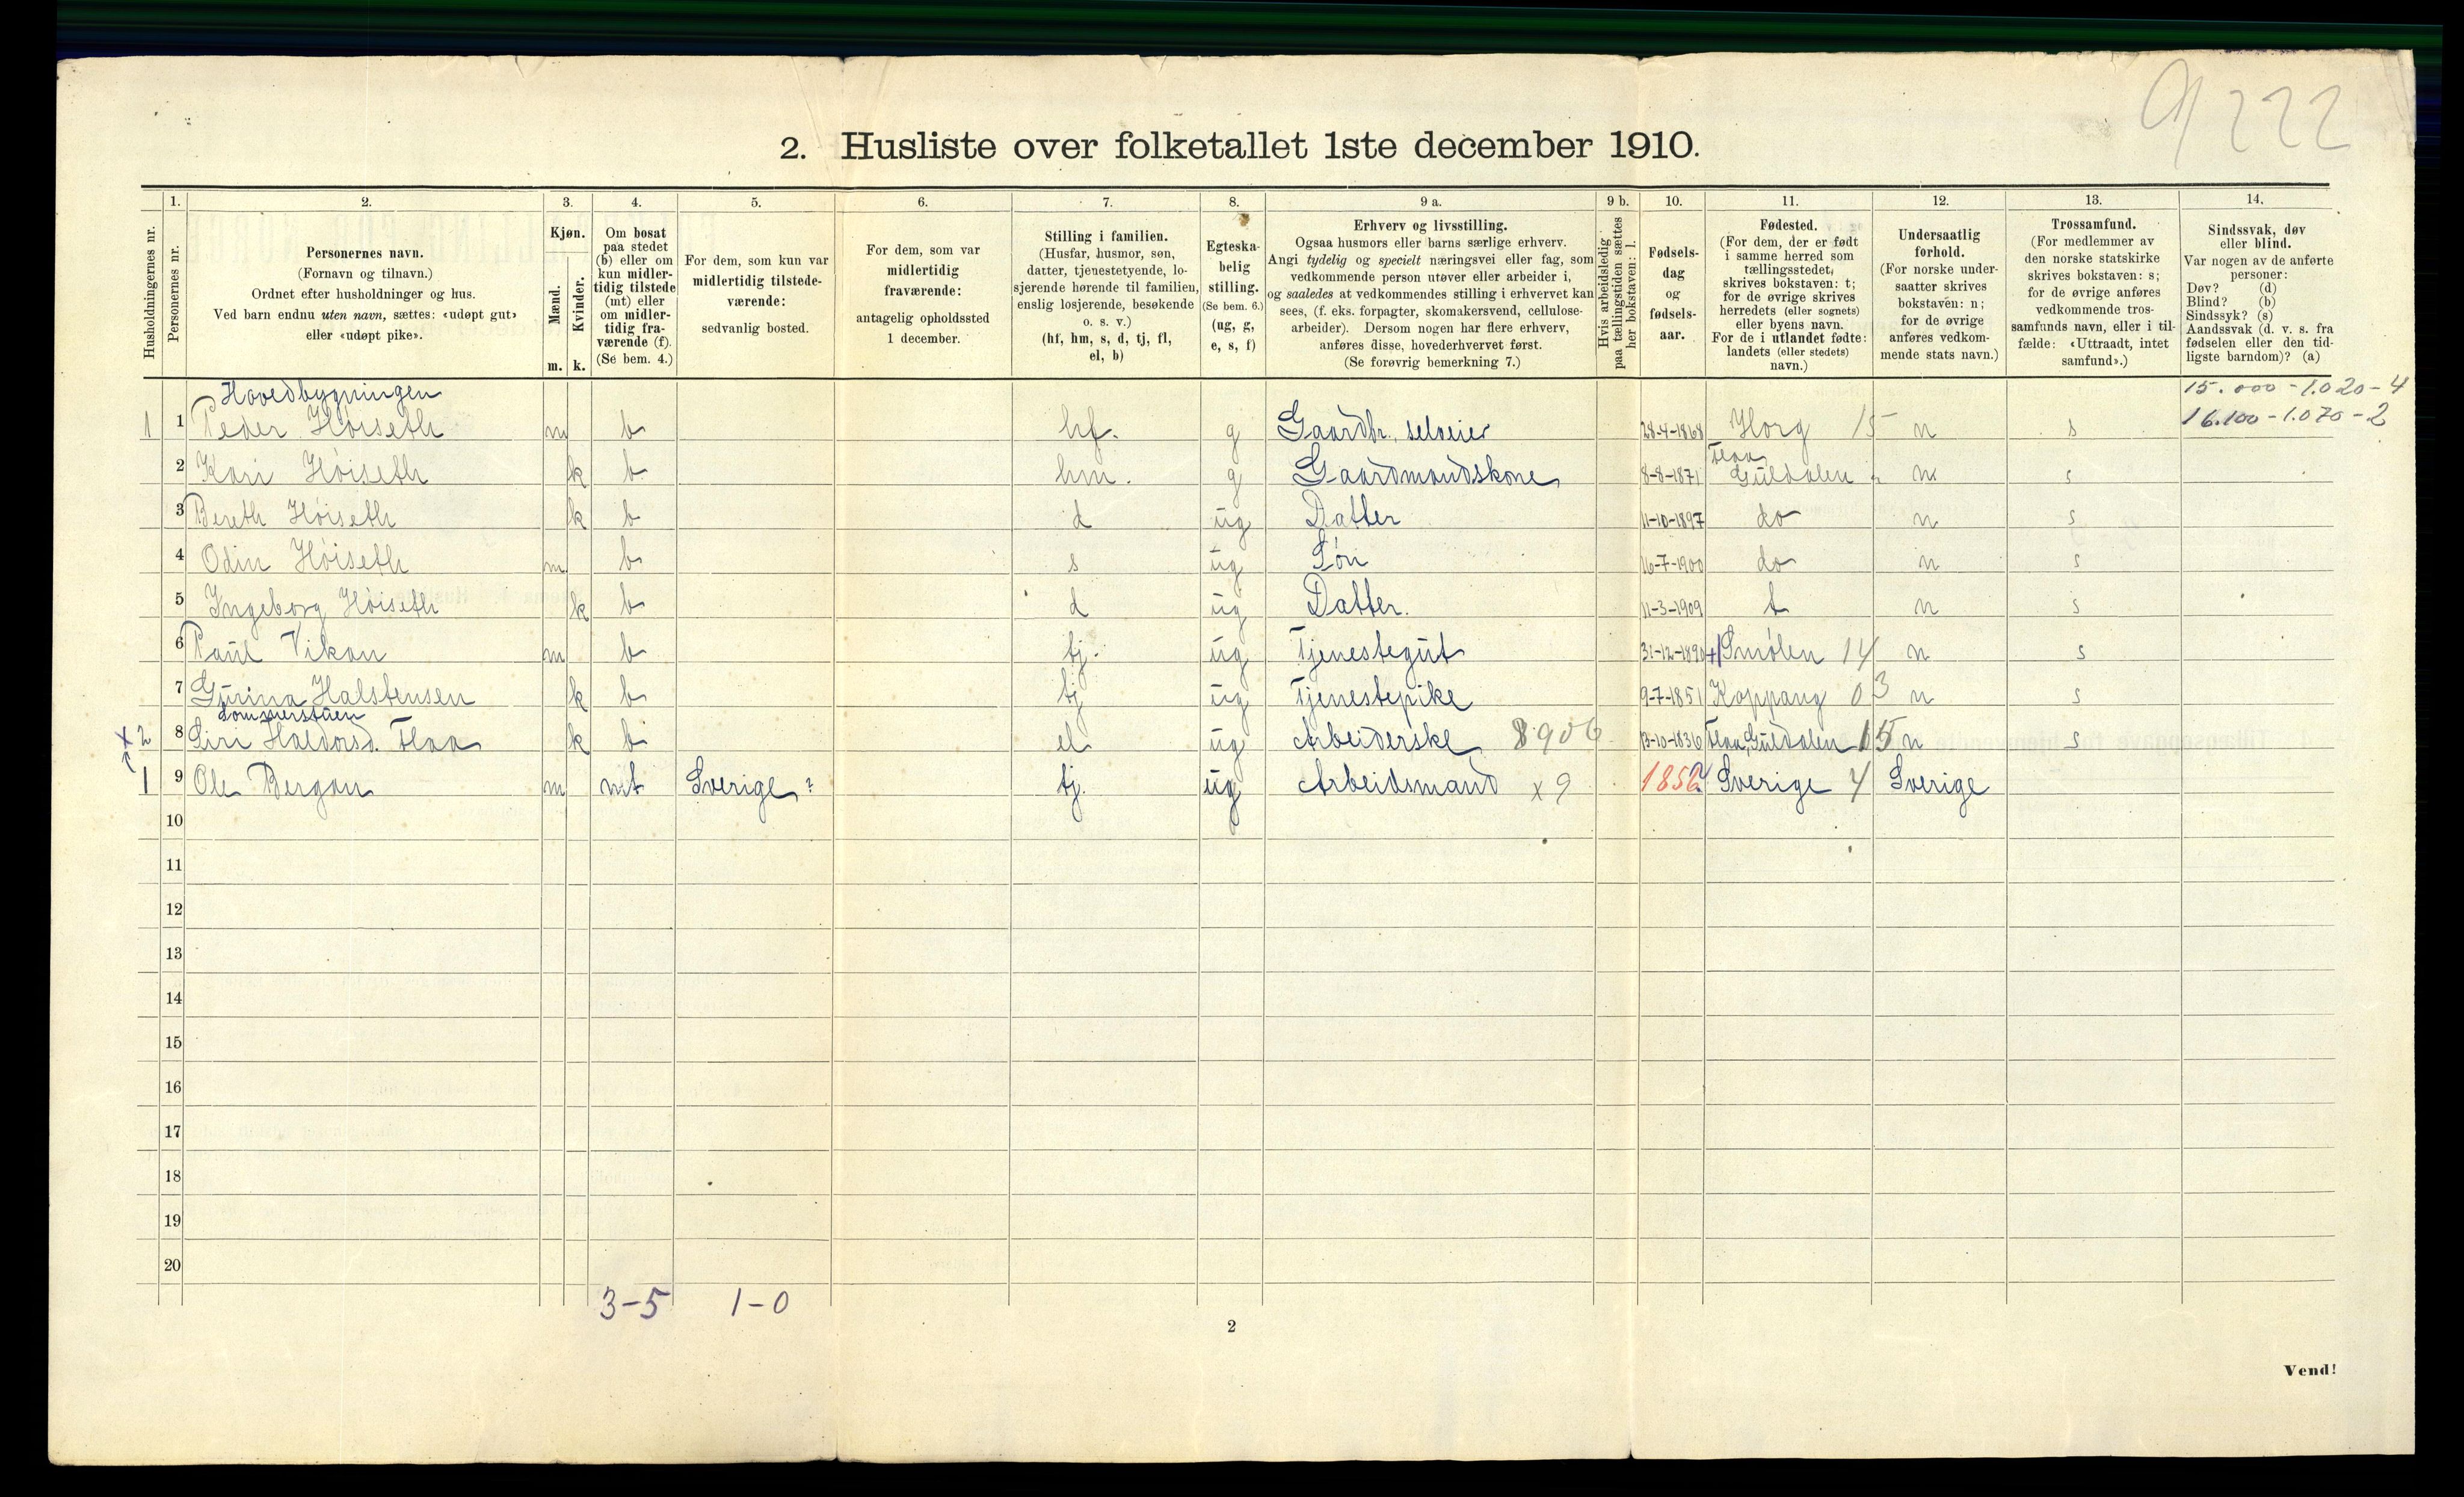 9/222
2. Husliste over folketallet 1ste december 1910.
Husholdningernes nr.
1.
Personernes nr.
2.
Personernes navn.
(Fornavn og tilnavn.)
Ordnet efter husholdninger og hus.
Ved barn endnu uten navn, sættes: «udøpt gut»
eller «udøpt pike».
3.
Kjøn.
Mænd.
Kvinder.
m. k.
4.
Om bosat
paa stedet
(b) eller om
kun midler-
tidig tilstede
(mt) eller
om midler-
tidig fra-
værende (f).
(Se bem. 4.)
5.
For dem, som kun var
midlertidig tilstede-
værende:
sedvanlig bosted.
6.
For dem, som var
midlertidig
fraværende:
antagelig opholdssted
1 december.
7.
Stilling i familien.
(Husfar, husmor, søn,
datter, tjenestetyende, lo-
sjerende hørende til familien,
enslig losjerende, besøkende
o. s. v.)
(hf, hm, s, d, tj, fl,
el, b)
8.
Egteska-
belig
stilling.
(Se bem. 6.)
(ug, g,
e, s, f)
9 a.
Erhverv og livsstilling.
Ogsaa husmors eller barns særlige erhverv.
Angi tydelig og specielt næringsvei eller fag, som
vedkommende person utøver eller arbeider i,
og saaledes at vedkommendes stilling i erhvervet kan
sees, (f. eks. forpagter, skomakersvend, cellulose-
arbeider). Dersom nogen har flere erhverv,
anføres disse, hovederhvervet først.
(Se forøvrig bemerkning 7.)
9 b.
Hvis arbeidsledig
paa tællingstiden sættes
her bokstaven: l.
10.
Fødsels-
dag
og
fødsels-
aar.
11.
Fødested.
(For dem, der er født
i samme herred som
tællingsstedet,
skrives bokstaven: t;
for de øvrige skrives
herredets (eller sognets)
eller byens navn.
For de i utlandet fødte:
landets (eller stedets)
navn.)
12.
Undersaatlig
forhold.
(For norske under-
saatter skrives
bokstaven: n;
for de øvrige
anføres vedkom-
mende stats navn.)
13.
Trossamfund.
(For medlemmer av
den norske statskirke
skrives bokstaven: s;
for de øvrige anføres
vedkommende tros-
samfunds navn, eller i til-
fælde: «Uttraadt, intet
samfund».)
14.
Sindssvak, døv
eller blind.
Var nogen av de anførte
personer:
Døv? (d)
Blind? (b)
Sindssyk? (s)
Aandssvak (d. v. s. fra
fødselen eller den tid-
ligste barndom)? (a)
Hovedbygningen
15.000 - 1.020 - 4
1 1 Peder Høiseth m b hf. g Gaardbr. selveier 28-4-1868 Horg 15 n s 16.100 - 1.070 - 2
2 Kari Høiseth k b hm. g Gaardmandskone 8-8-1871 Flaa Guldalen " n s
3 Bereth Høiseth k b d ug Datter 11-10-1897 do n s
4 Odin Høiseth m b s ug Søn 16-7-1900 do n s
5 Ingeborg Høiseth k b d ug Datter. 11-3-1909 t n s
6 Paul Vikan m b tj. ug Tjenestegut 31-12-1890 + Smølen 14 n s
7 Gurina Halstensen k b tj ug Tjenestepike 9-7-1851 Koppang 03 n s
Sommerstuen
x 2 8 Siri Haldorsd. Flaa k b el ug Arbeiderske 8906 13-10-1836 Flaa, Guldalen 15 n s
1 9 Ole Bergan m mt Sverige? tj. ug Arbeidsmand x 9 1852 Sverige 4 Sverige
10
11
12
13
14
15
16
17
18
19
20
3-5 1-0
2
Vend!